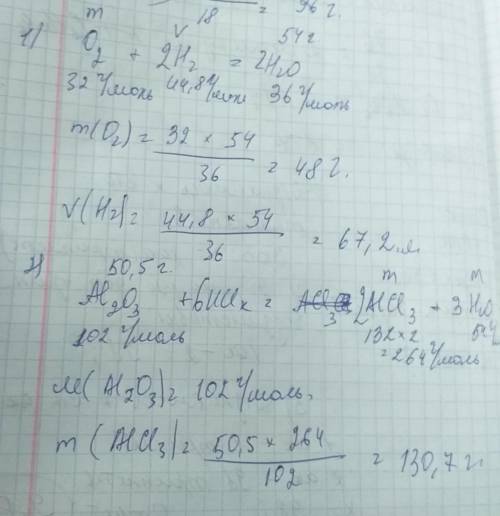 18 = 96 г.
1) m v 54 г
O₂ + 2H₂ = 2H₂O
32 г/моль 44,8 г/моль 36 г/моль
m(O₂) = 32 × 54 / 36 = 48 г.
V(H₂) = 44,8 × 54 / 36 = 67,2 л.
2) 50,5 г. m m
Al₂O₃ + 6HCl = 2AlCl₃ + 3H₂O
102 г/моль 132×2 54
= 264 г/моль
M(Al₂O₃) = 102 г/моль.
m(AlCl₃) = 50,5 × 264 / 102 = 130,7 г.